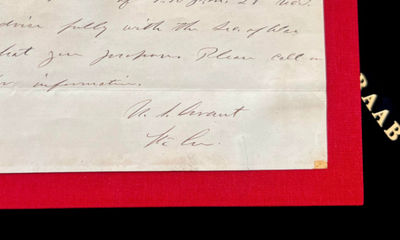 of 5.30 P.M. 29 rec'd.
advise fully with the Sec. of War
what you propose. Please call on
for information.
U. S. Grant
Lt. Gn.
RAAB